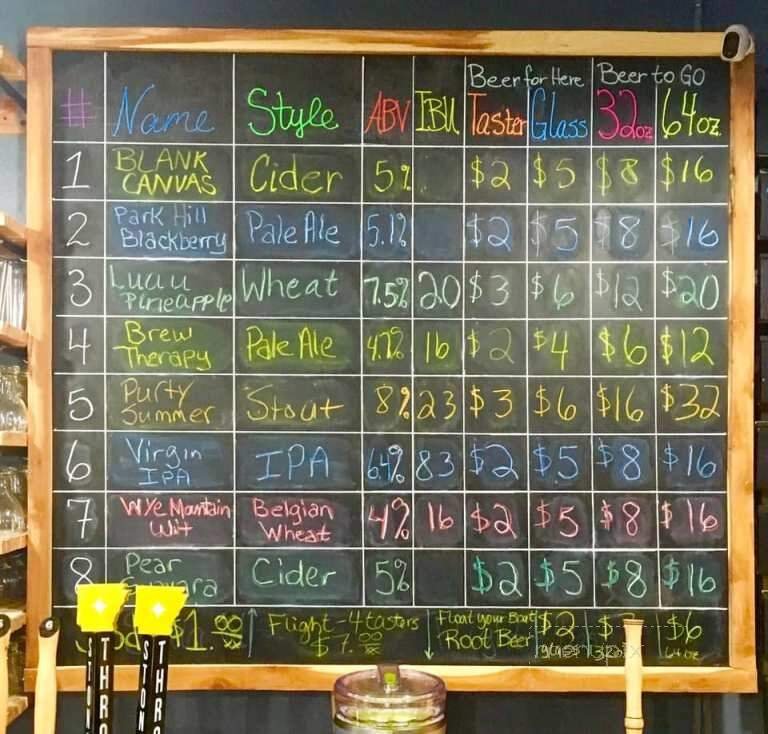 Beer for Here Beer to GO
# Name Style ABV IBU Taster Glass 32oz 64oz.
1 BLANK CANVAS Cider 5% $2 $5 $8 $16
2 Park Hill Blackberry Pale Ale 5.1% $2 $5 $8 $16
3 Luau Pineapple Wheat 7.5% 20 $3 $6 $12 $20
4 Brew Therapy Pale Ale 4.7% 16 $2 $4 $6 $12
5 Purty Summer Stout 8% 23 $3 $6 $16 $32
6 Virgin IPA IPA 6.4% 83 $2 $5 $8 $16
7 Wye Mountain Wit Belgian Wheat 4% 16 $2 $5 $8 $16
8 Pear Cider 5% $2 $5 $8 $16
$1.00 Flight - 4 tasters Float your Boat $2 $6
$7.00 Root Beer glass 32oz 64oz
STON THRO STON THRO